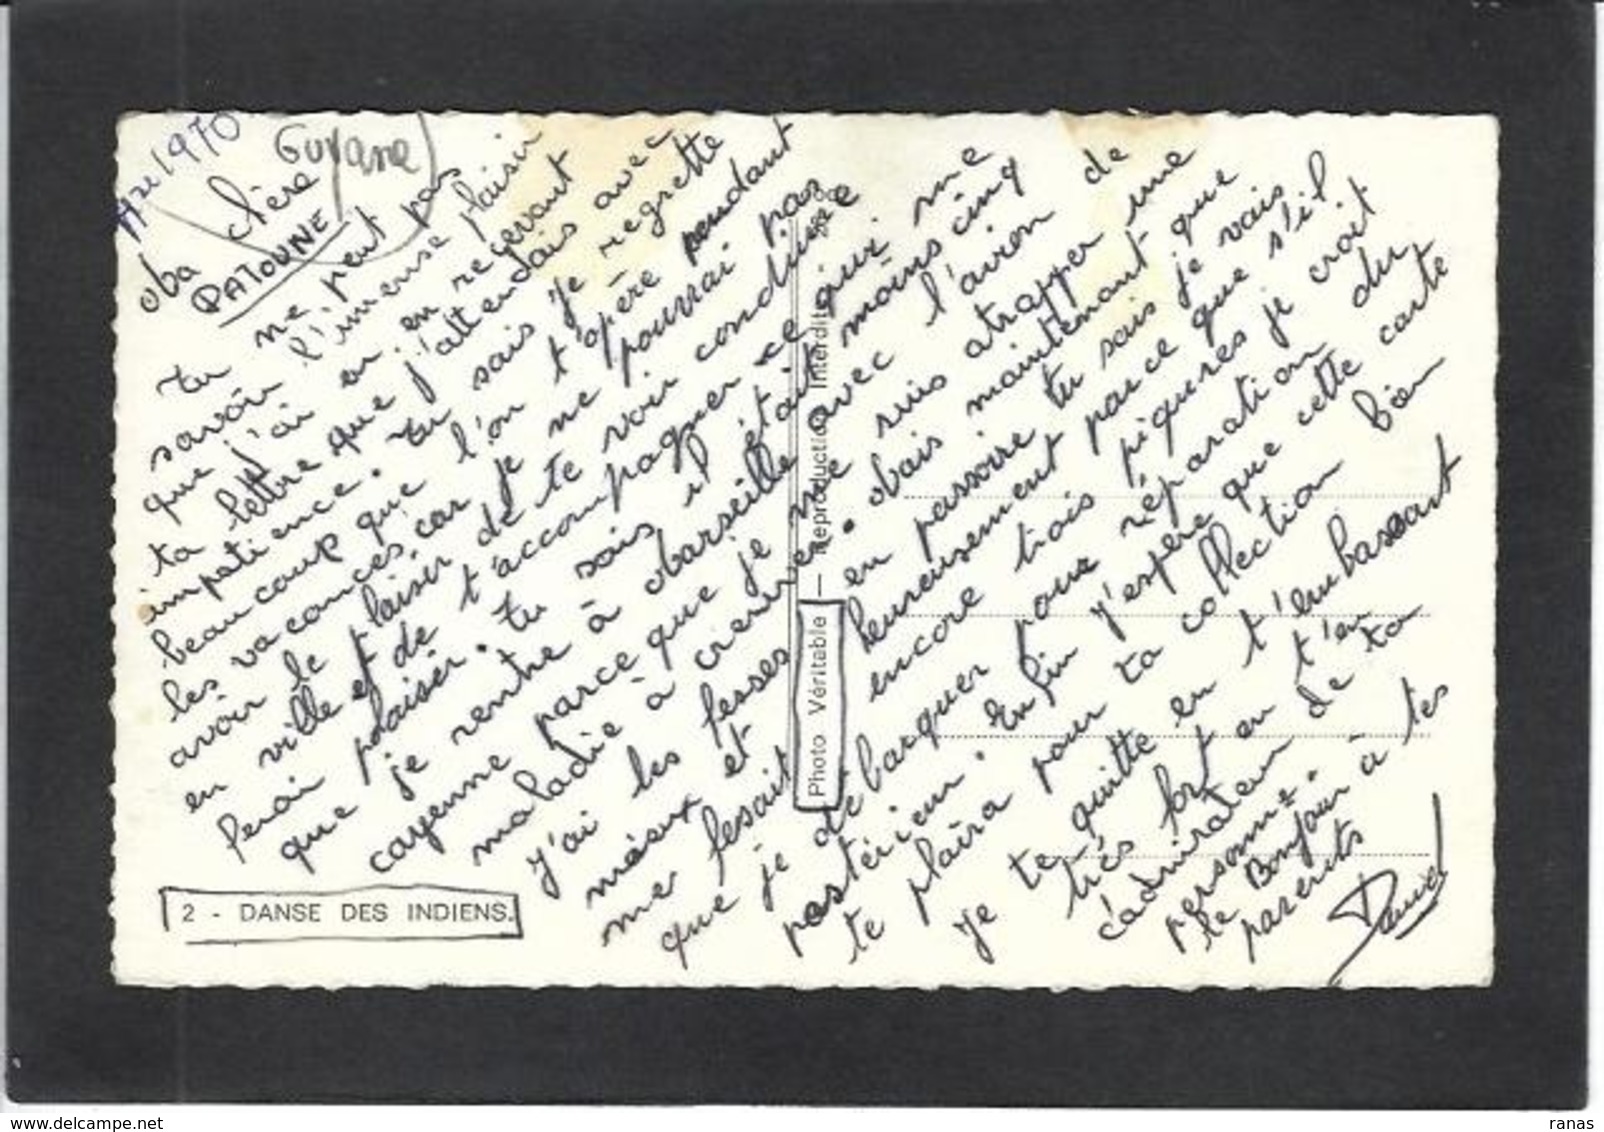 1970
Guyane
Ma Chère
PATOUNE
Tu ne peut pas
savoir l'imense plaisir
que j'ai eu en recevant
ta lettre que j'attendais avec
impatience. Tu sais je regrette
beaucoup que l'on t'opère pendant
les vacances, car je ne pourrai pas
avoir le plaisir de te voir conduire
en ville et de t'accompagner ce qui me
ferai plaisir. Tu sais il était moins cinq
que je rentre à Marseille avec l'avion de
cayenne parce que je me suis atrapper une
maladie à crever. Mais maintenant que
j'ai les fesses en passoire tu sais je vais
mieux et heureusement parce que s'il
me fesait encore trois piqures je croit
que je débarquer pour réparation du
postérieur. Enfin j'espère que cette carte
te plaira pour ta collection bien
je te quitte en t'embassant
très fort en t'en
c'admirateur de ta
personne.
le Bonjour à tes
parents
Daniel
2 - DANSE DES INDIENS.
Photo Véritable — Reproduction Interdite
ranas